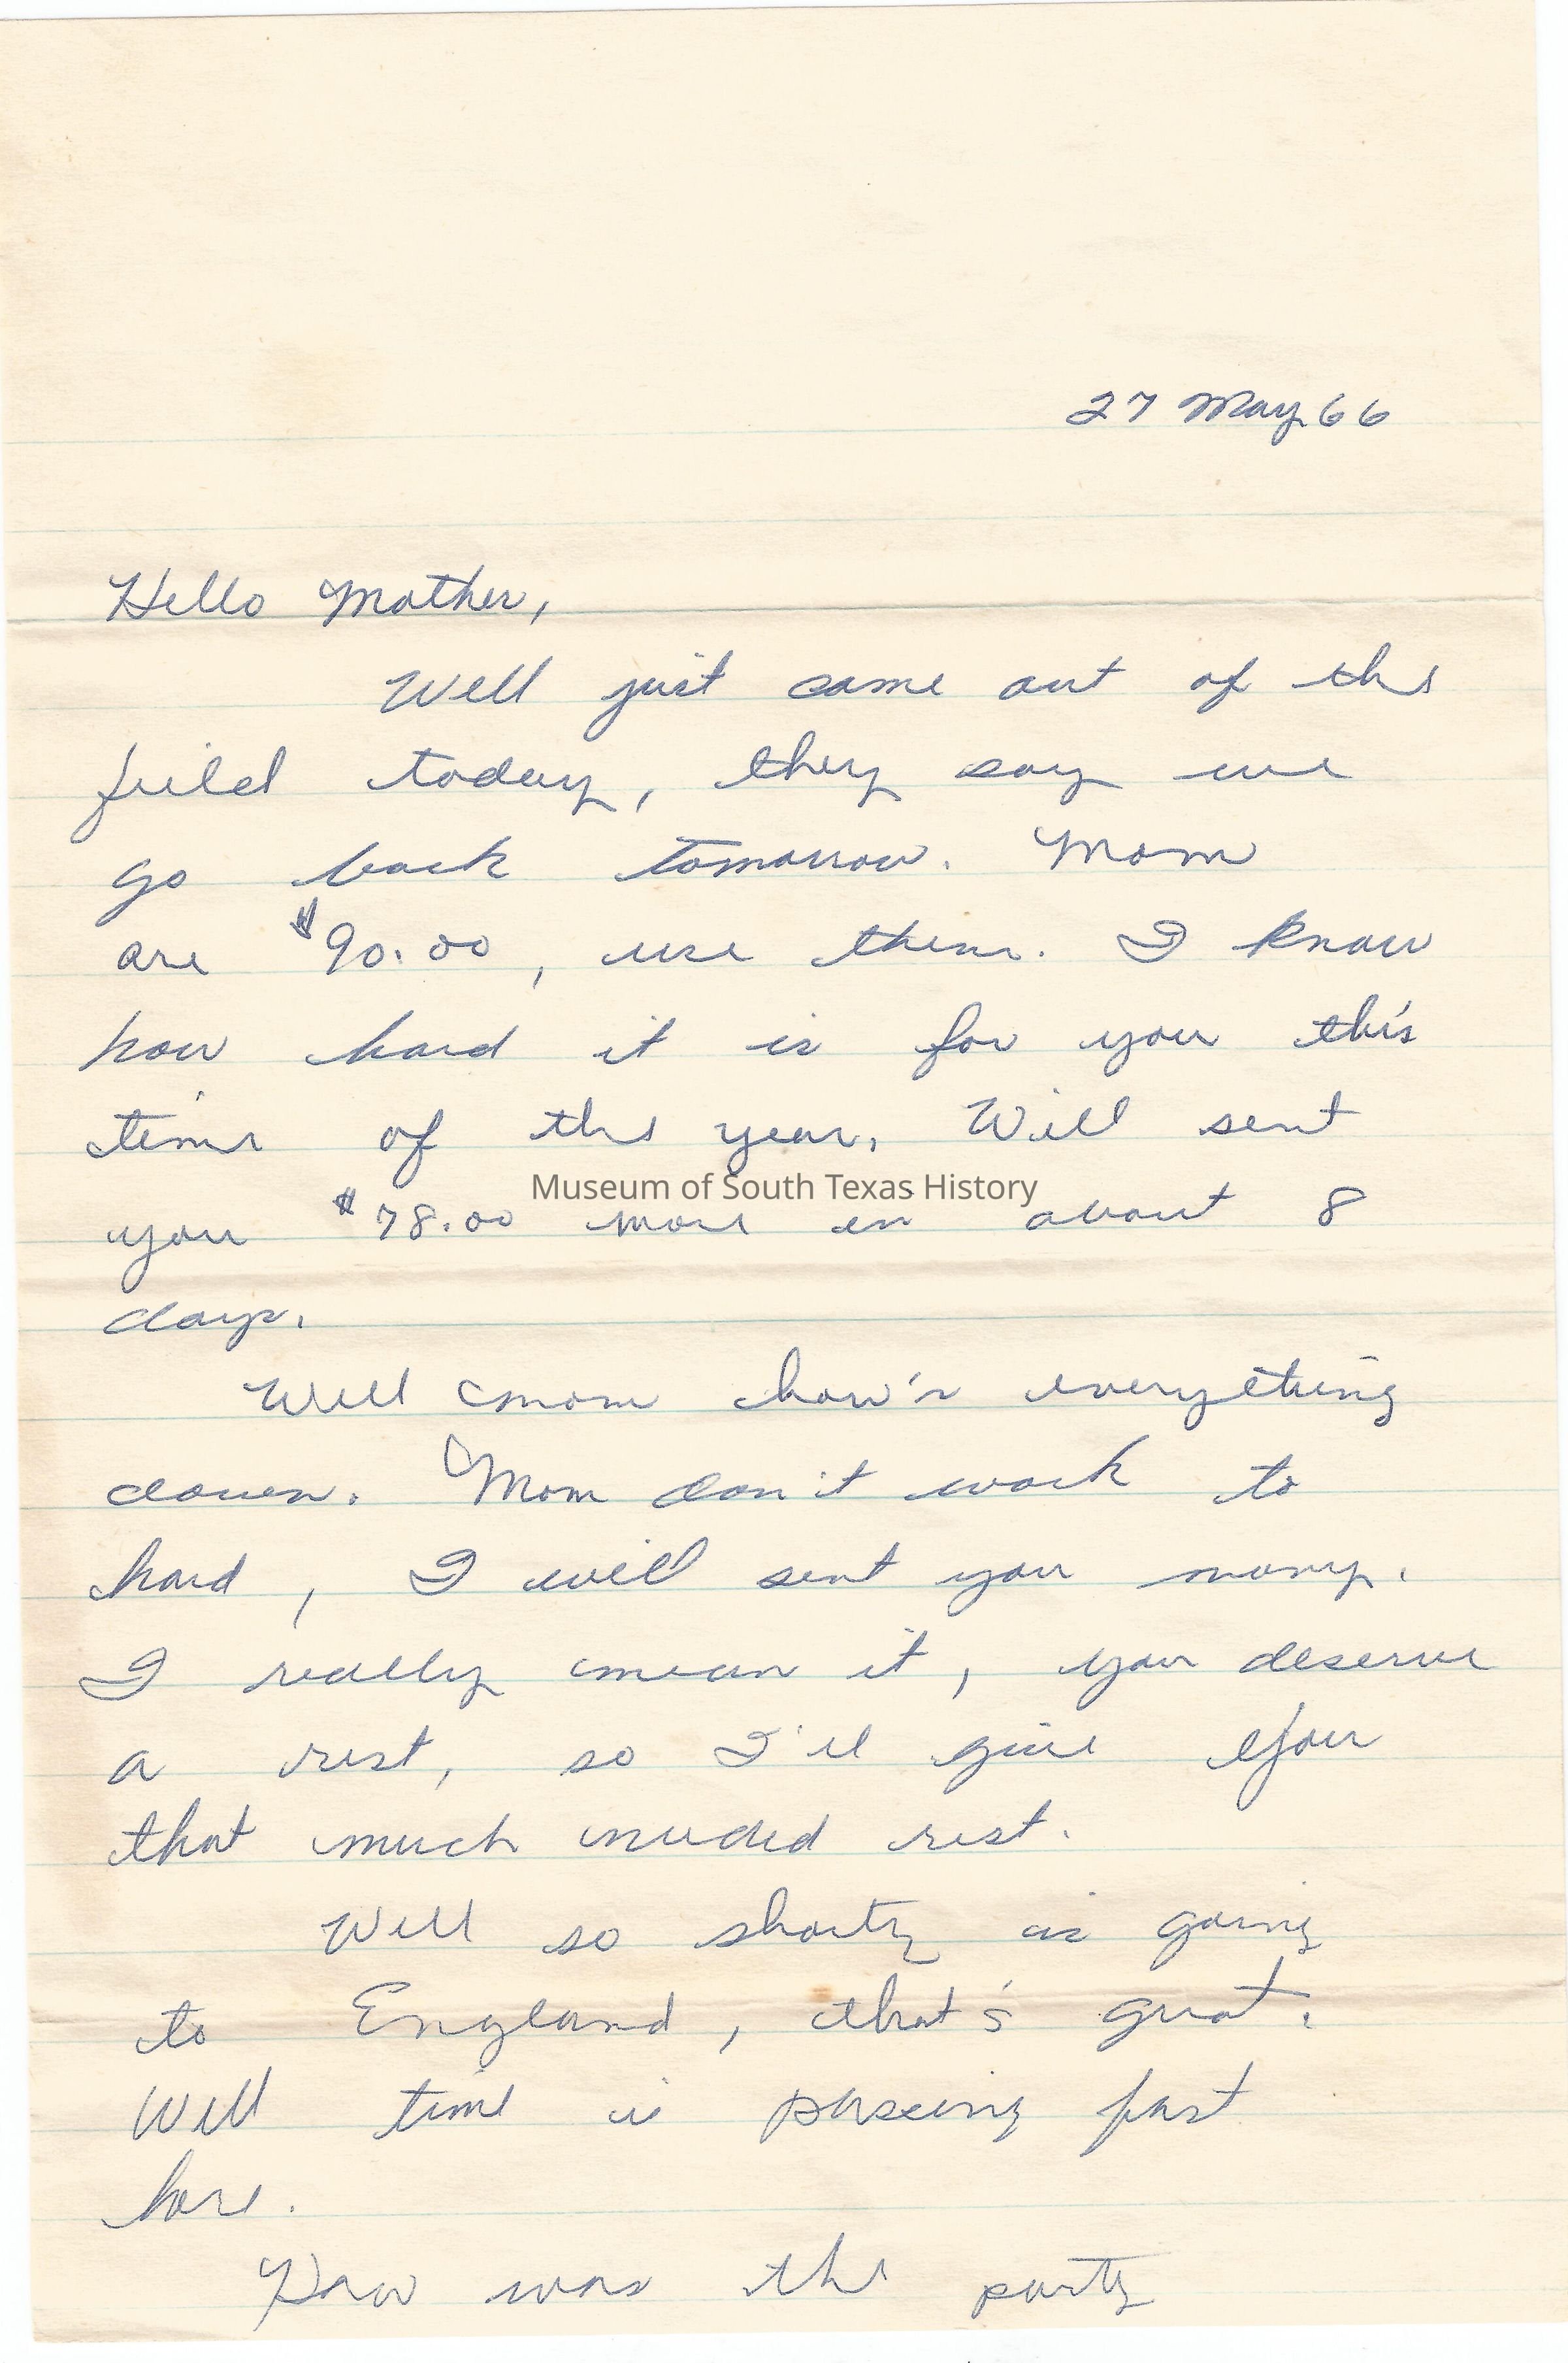 27 May 66
Hello Mother,
Well just came out of the
field today, they say we
go back tomorrow. Mom
are $90.00, use them. I know
how hard it is for you this
time of the year, Will sent
Museum of South Texas History
you $78.00 more in about 8
days.
Well mom how's everything
down. Mom don't work to
hard, I will sent you mony.
I really mean it, you deserve
a rest, so I'll give you
that much needed rest.
Well so shorty is going
to England, that's great.
Well time is passing fast
here.
How was the party